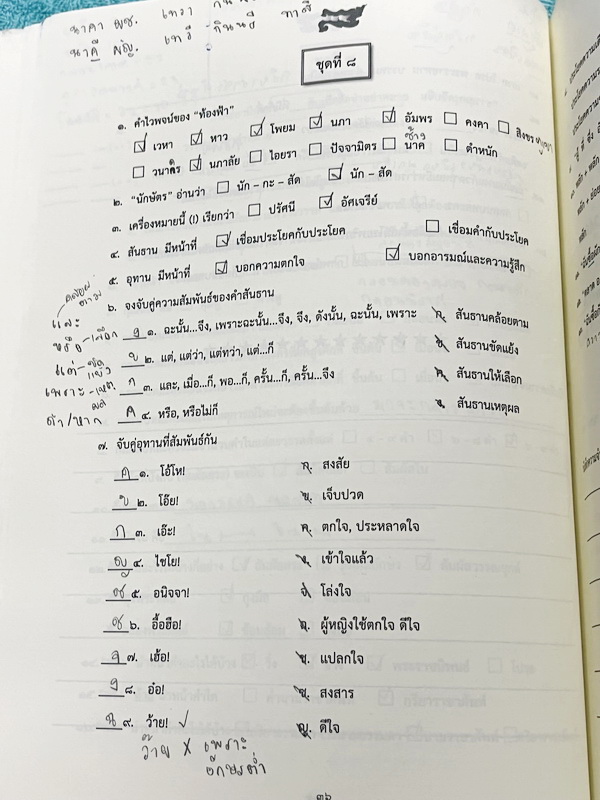 นาคา ผช. เทวา
นาคี ผญ. เทวี กินนรี ทาสี
ชุดที่ ๘
๑. คำไวพจน์ของ "ท้องฟ้า"
☑ เวหา ☑ หาว ☑ โพยม ☑ นภา ☑ อัมพร ☐ คงคา ☐ สิงขร ภูเขา
☐ วนาดร ☑ นภาลัย ☐ ไอยรา ☐ ปัจจามิตร ☐ นาค ช้าง ☐ ตำหนัก
๒. "นักษัตร" อ่านว่า ☐ นัก - กะ - สัด ☑ นัก - สัด
๓. เครื่องหมายนี้ (!) เรียกว่า ☐ ปรัศนี ☑ อัศเจรีย์
๔. สันธาน มีหน้าที่ ☑ เชื่อมประโยคกับประโยค ☐ เชื่อมคำกับประโยค
๕. อุทาน มีหน้าที่ ☑ บอกความตกใจ ☑ บอกอารมณ์และความรู้สึก
๖. จงจับคู่ความสัมพันธ์ของคำสันธาน
และ คล้อยตาม
หรือ - เลือก
แต่ - ขัดแย้ง
เพราะ - เหตุผล
ถ้า/หาก
ง ๑. ฉะนั้น...จึง, เพราะฉะนั้น...จึง, จึง, ดังนั้น, ฉะนั้น, เพราะ ก. สันธานคล้อยตาม
ข ๒. แต่, แต่ว่า, แต่ทว่า, แต่...ก็ ข. สันธานขัดแย้ง
ก ๓. และ, เมื่อ...ก็, พอ...ก็, ครั้น...ก็, ครั้น...จึง ค. สันธานให้เลือก
ค ๔. หรือ, หรือไม่ก็ ง. สันธานเหตุผล
๗. จับคู่อุทานที่สัมพันธ์กัน
ค ๑. โอ้โห! ก. สงสัย
ข ๒. โอ๊ย! ข. เจ็บปวด
ก ๓. เอ๊ะ! ค. ตกใจ, ประหลาดใจ
ญ ๔. ไชโย! ง. เข้าใจแล้ว
ซ ๕. อนิจจา! จ. โล่งใจ
ช ๖. อื้อฮือ! ฉ. ผู้หญิงใช้ตกใจ ดีใจ
จ ๗. เฮ้อ! ช. แปลกใจ
ง ๘. อ๋อ! ซ. สงสาร
ฉ ๙. ว้าย! ✓ ญ. ดีใจ
ว๊าย X เพราะ
อักษรต่ำ
๓๖